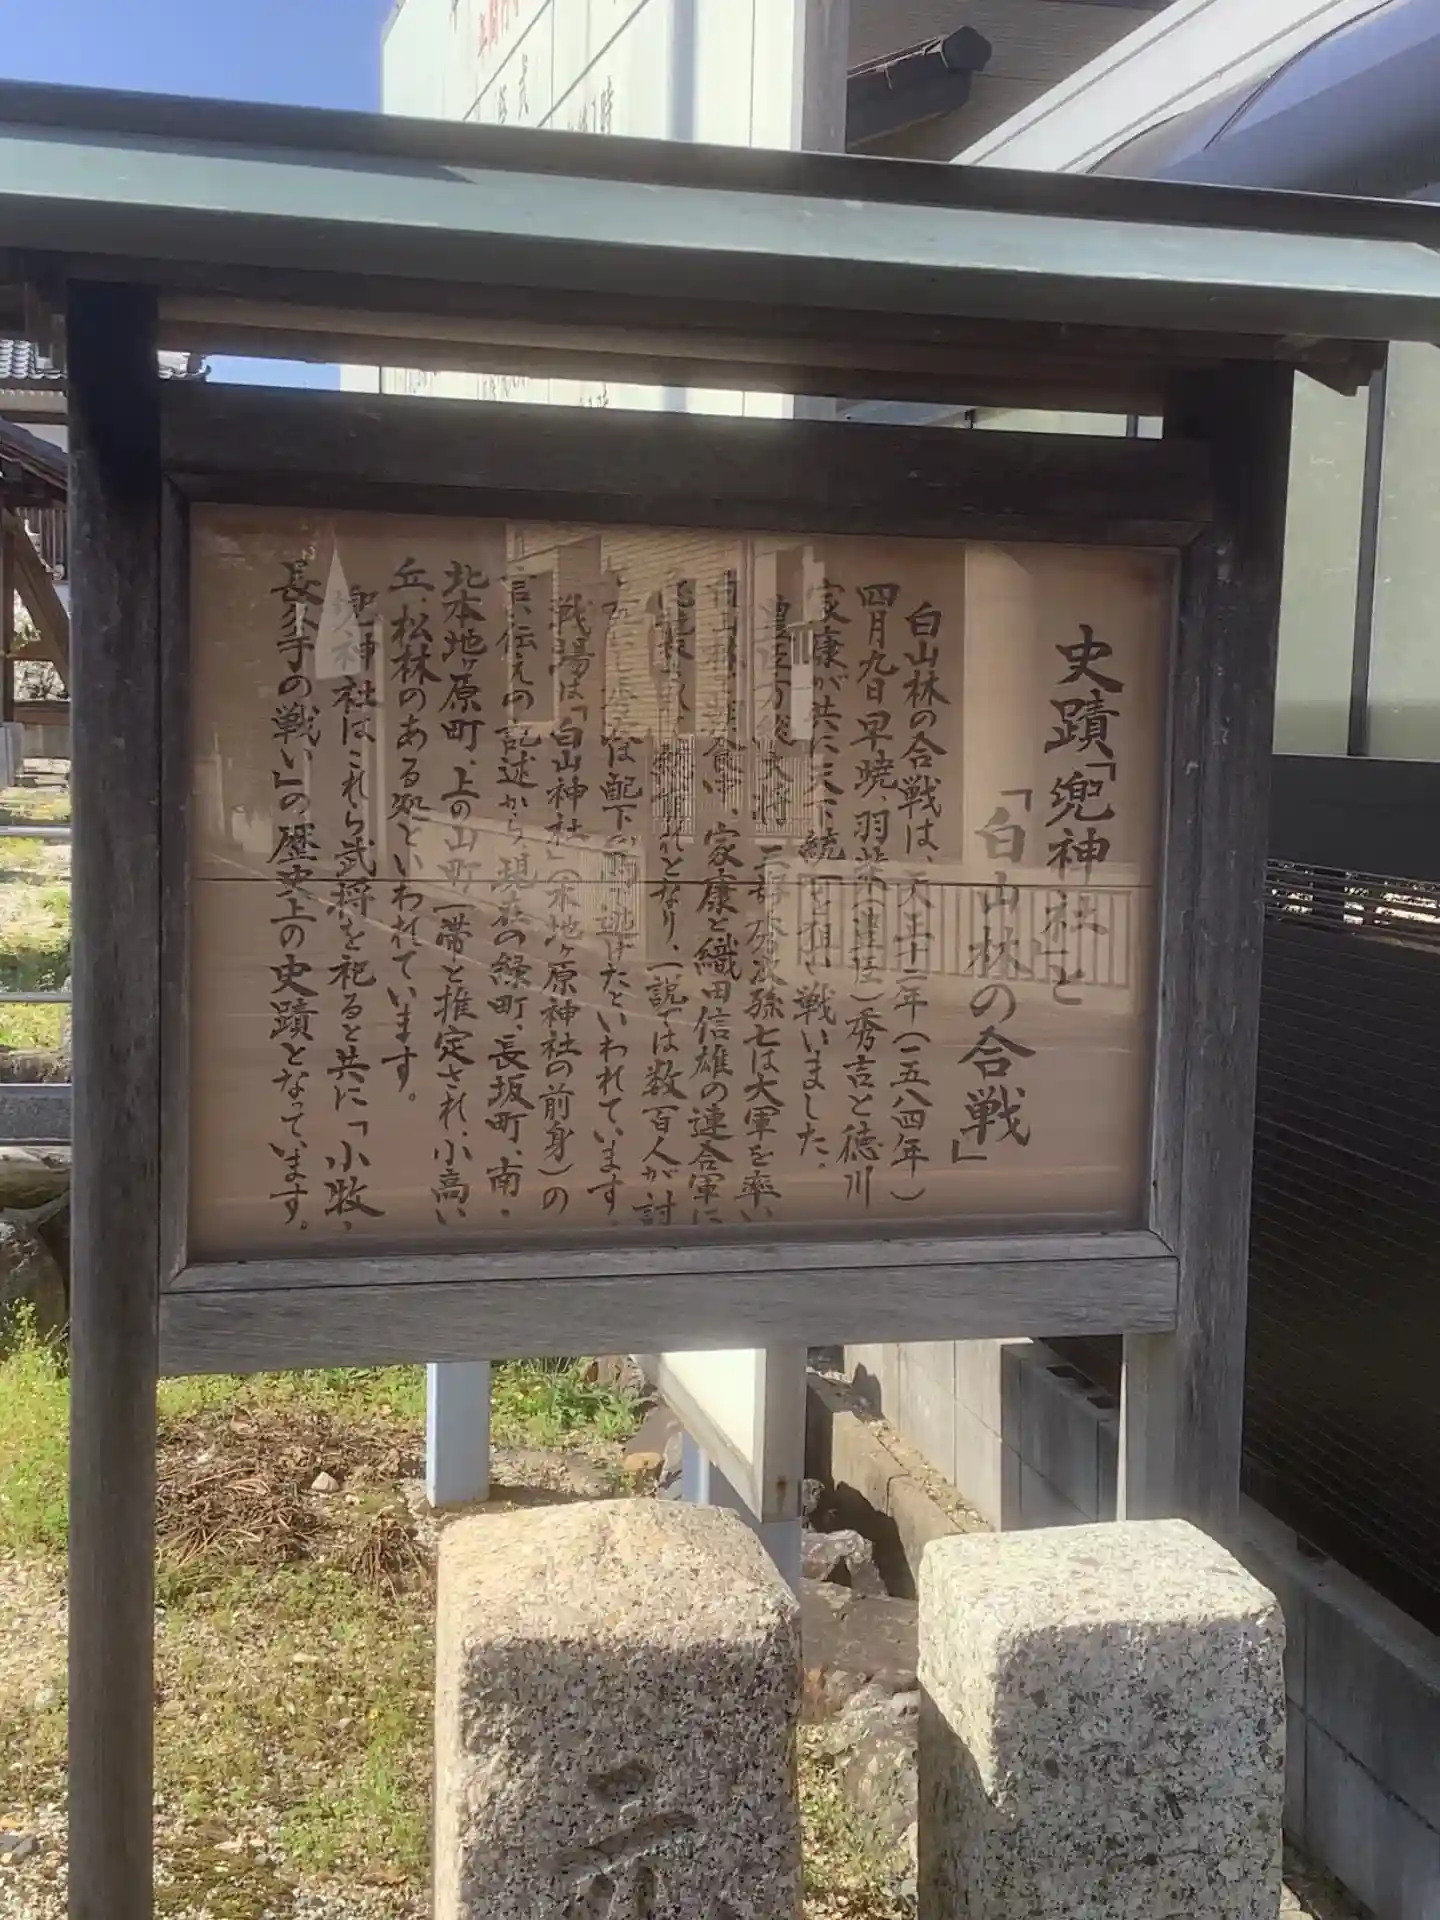 史蹟「兜神社」と
「白山林の合戦」
白山林の合戦は、天正十二年（一五八四年）
四月九日早暁、羽柴（豊臣）秀吉と徳川
家康が共に天下統一を狙い戦いました。
豊臣方総大将 三好 孫七は大軍を率い
白山林 朝食中、家康と織田信雄の連合軍に
総崩れとなり、一説では数百人が討
は配下の馬で逃げたといわれています。
戦場は「白山神社」（本地ヶ原神社の前身）の
言い伝えの記述から、現在の緑町、長坂町、南・
北本地ヶ原町、上の山町一帯と推定され、小高い
丘、松林のある処といわれています。
兜神社はこれら武将を祀ると共に「小牧・
長久手の戦い」の歴史上の史蹟となっています。